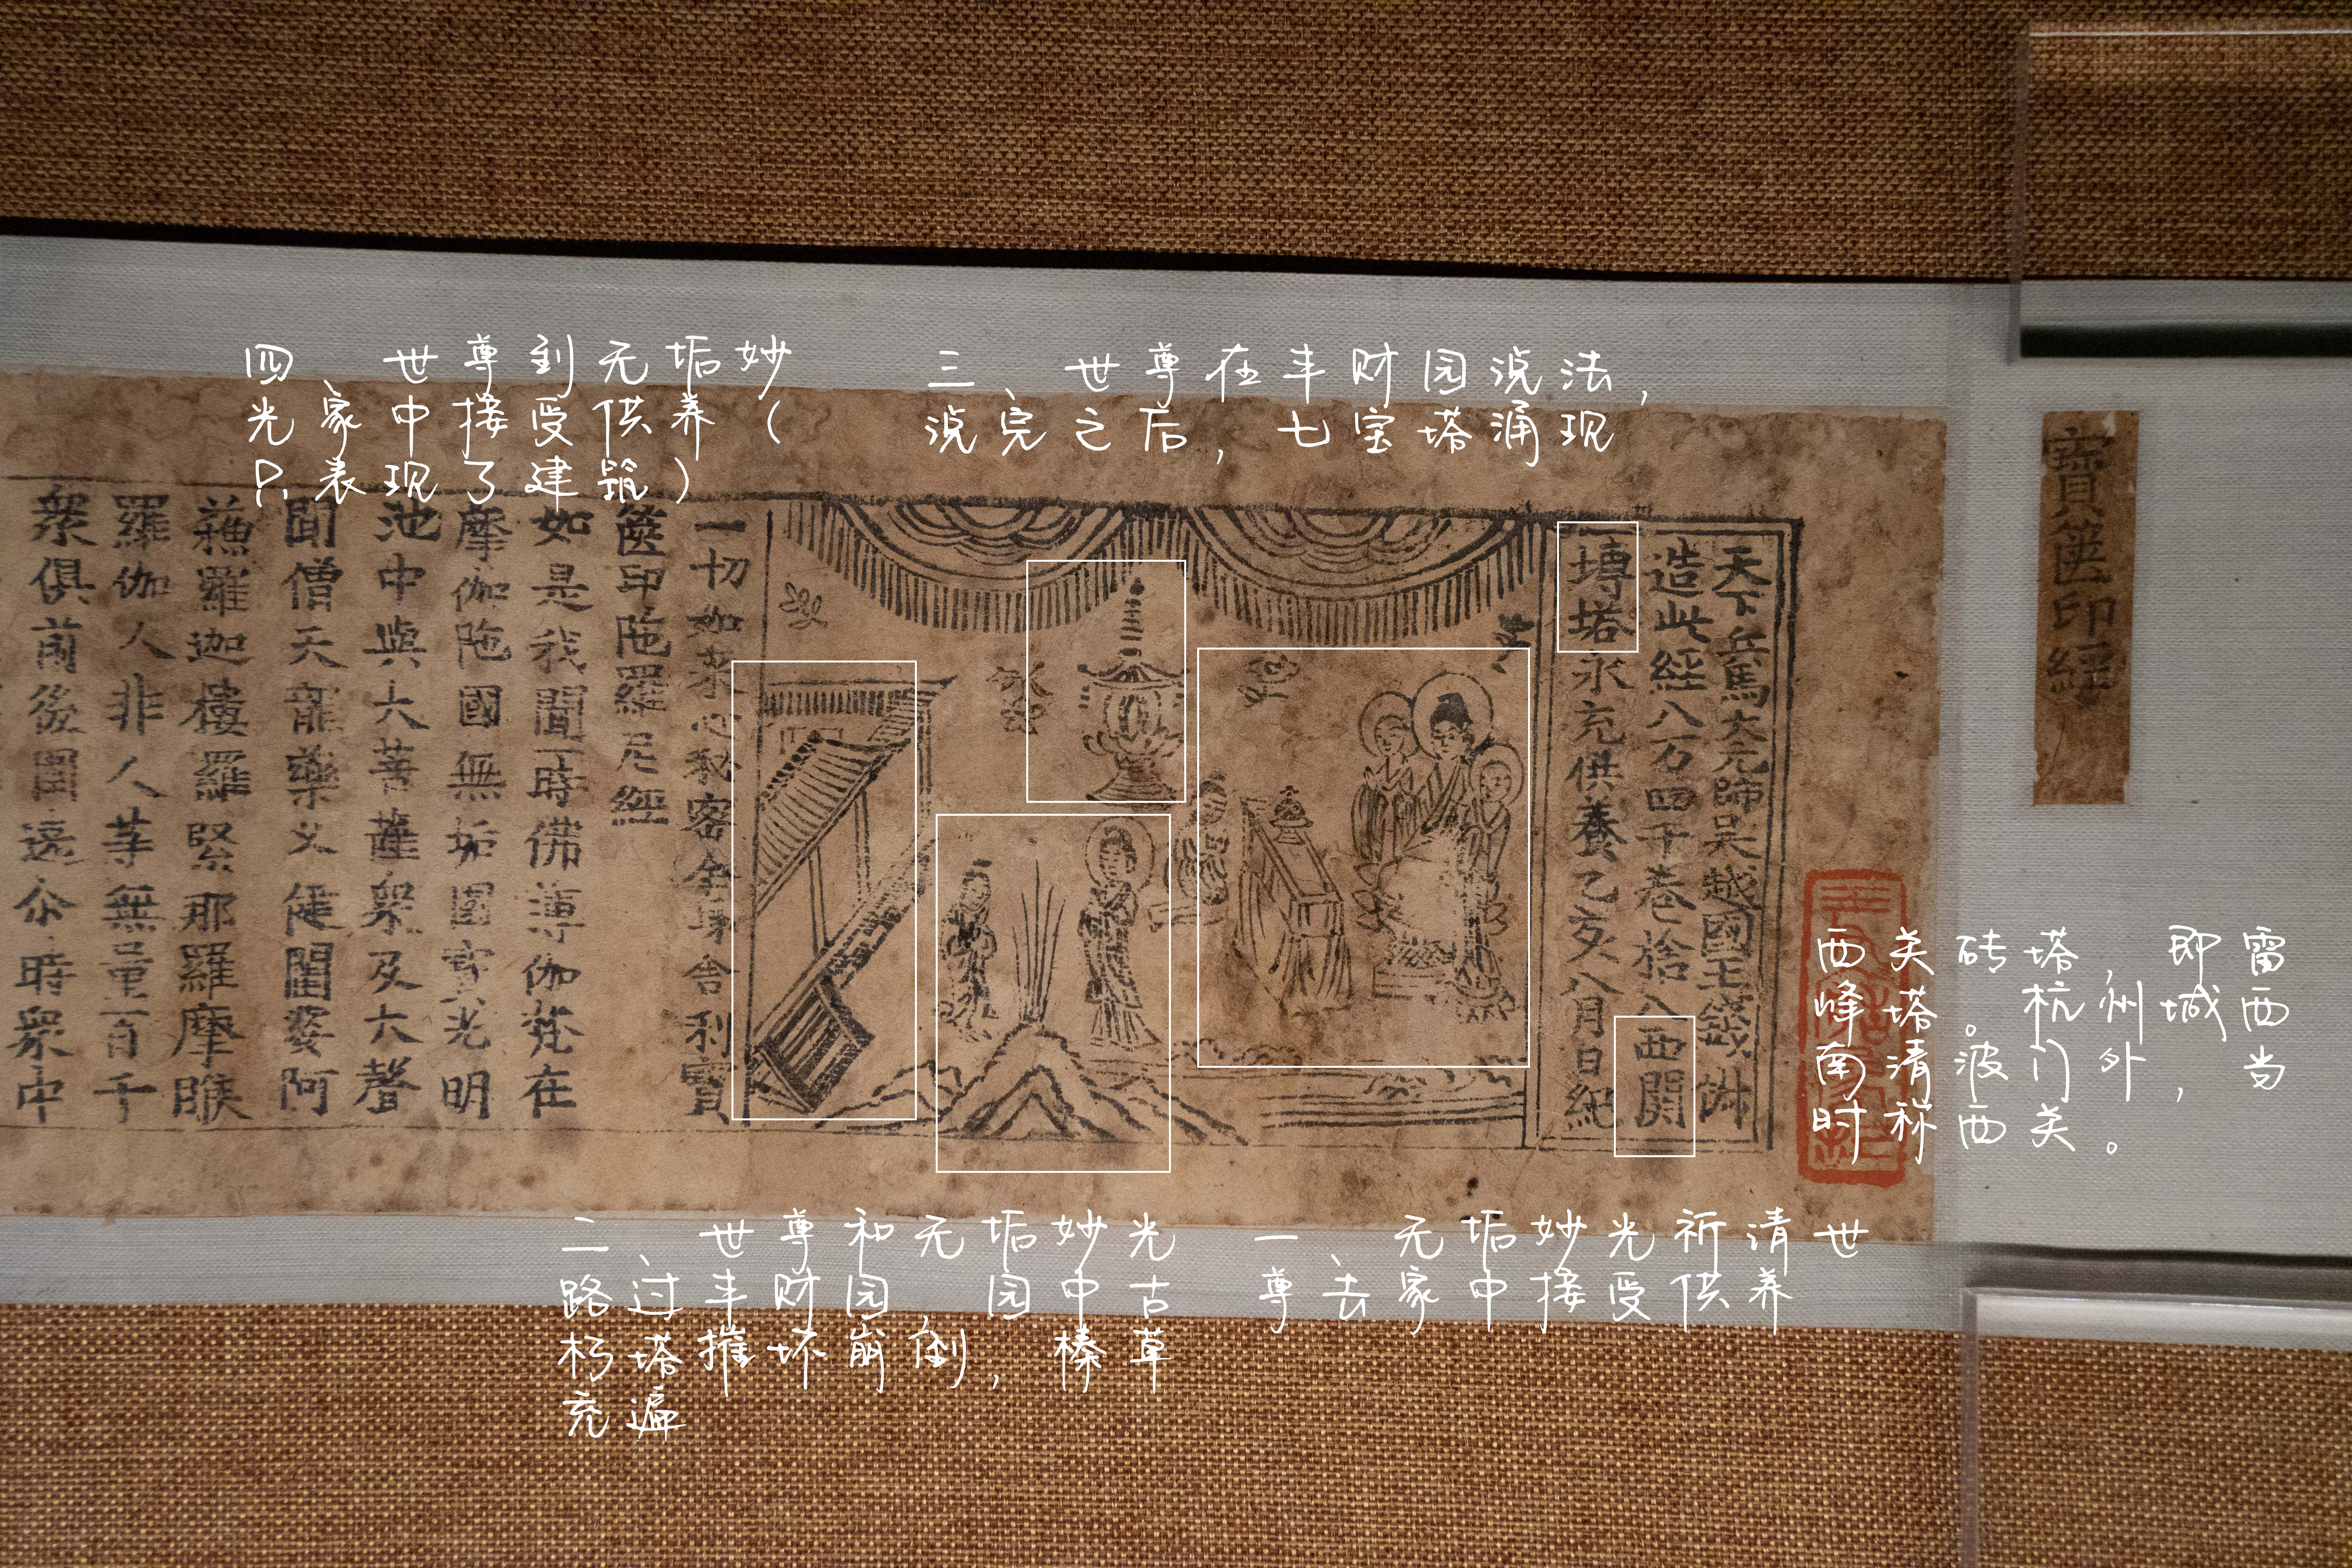 四、世尊到无垢妙
光家中接受供养（
只表现了建筑）
三、世尊在丰财园说法，
说完之后，七宝塔涌现
寶篋印經
天下兵馬大元帥吳越國王錢俶
造此經八万四千卷捨入西關
塼塔永充供養乙亥八月日紀
一切如來心秘密全身舍利寶
篋印陁羅尼經
如是我聞一時佛薄伽梵在
摩伽陁國無垢園寶光明
池中與大菩薩衆及大聲
聞僧天龍藥叉健闥婆阿
蘓羅迦樓羅緊那羅摩睺
羅伽人非人等無量百千
衆俱前後圍遶尒時衆中
西关砖塔，即雷
峰塔。杭州城西
南清波门外，当
时称西关。
二、世尊和无垢妙光
路过丰财园，园中古
朽塔摧坏崩倒，榛草
充遍
一、无垢妙光祈请世
尊去家中接受供养